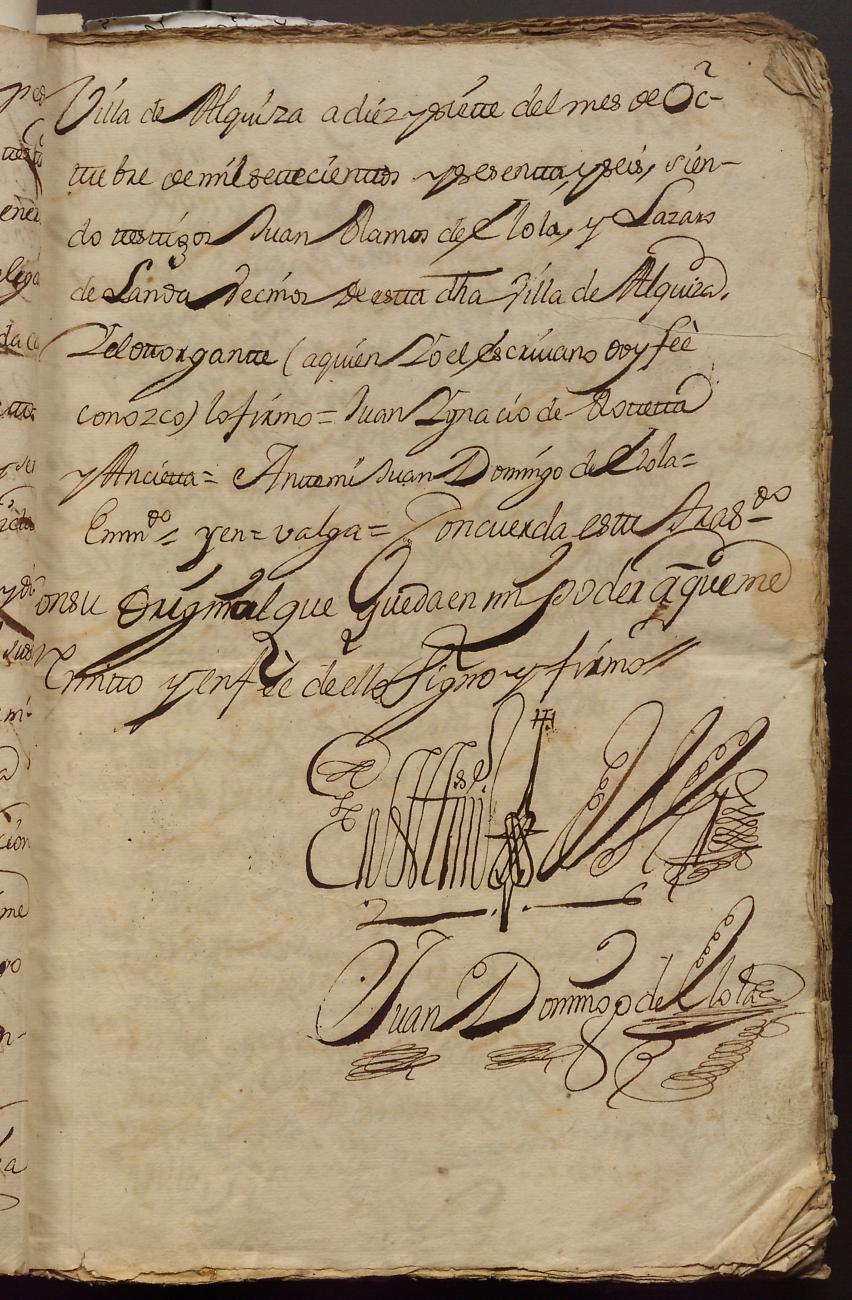 Villa de Alquiza a diez y siette del mes de Oc-
ttubre de mil settecienttos y sesentta, y seis, sien-
do testtigos Juan Ramos de Llola, y Lazaro
de Landa Vecinos de estta dha Villa de Alquiza.
Y el ottorgantte (a quien Yo el escrivano doy feè
conozco) lo firmo = Juan Ygnacio de Rotteta
y Ancietta = Antte mi Juan Domingo de Llola =
Enmdo = y en = valga = Concuerda este Trasdo =
con su Original que queda en mi poder a que me
rremitto y en feè de ello Signo y firmo
En testtimo de Verd
Juan Domingo de Llola